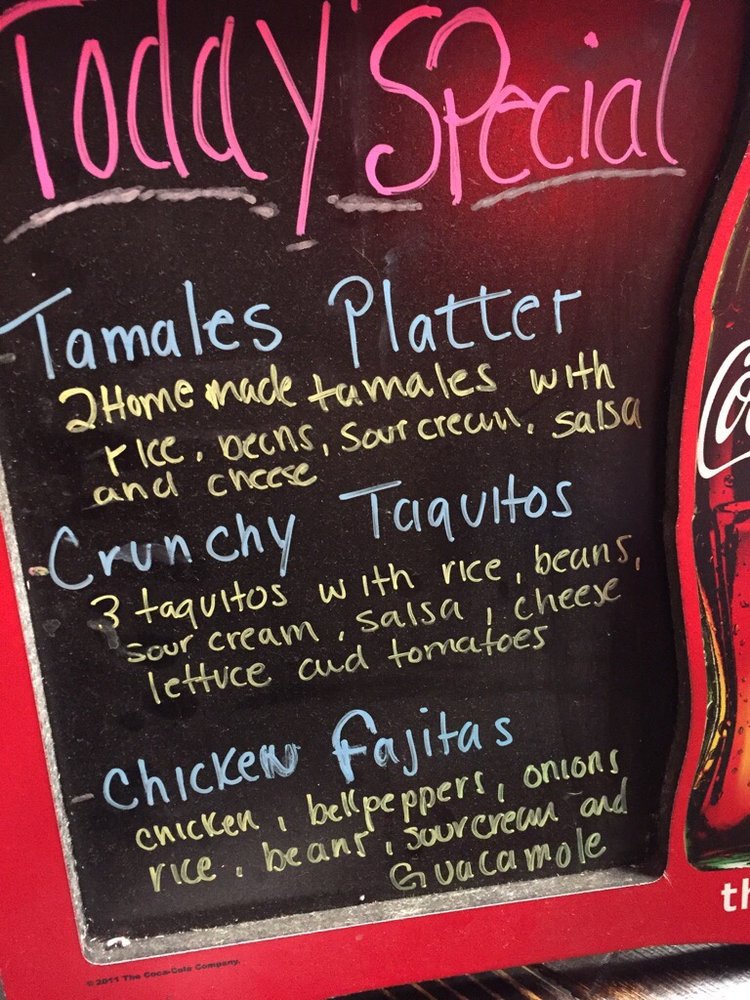 Today Special
Tamales Platter
2 Home made tamales with
rice, beans, sour cream, salsa
and cheese
Crunchy Taquitos
3 taquitos with rice, beans,
sour cream, salsa, cheese
lettuce and tomatoes
Chicken Fajitas
chicken, bellpeppers, onions
rice, beans, sour cream and
Guacamole
th
© 2011 The Coca-Cola Company.